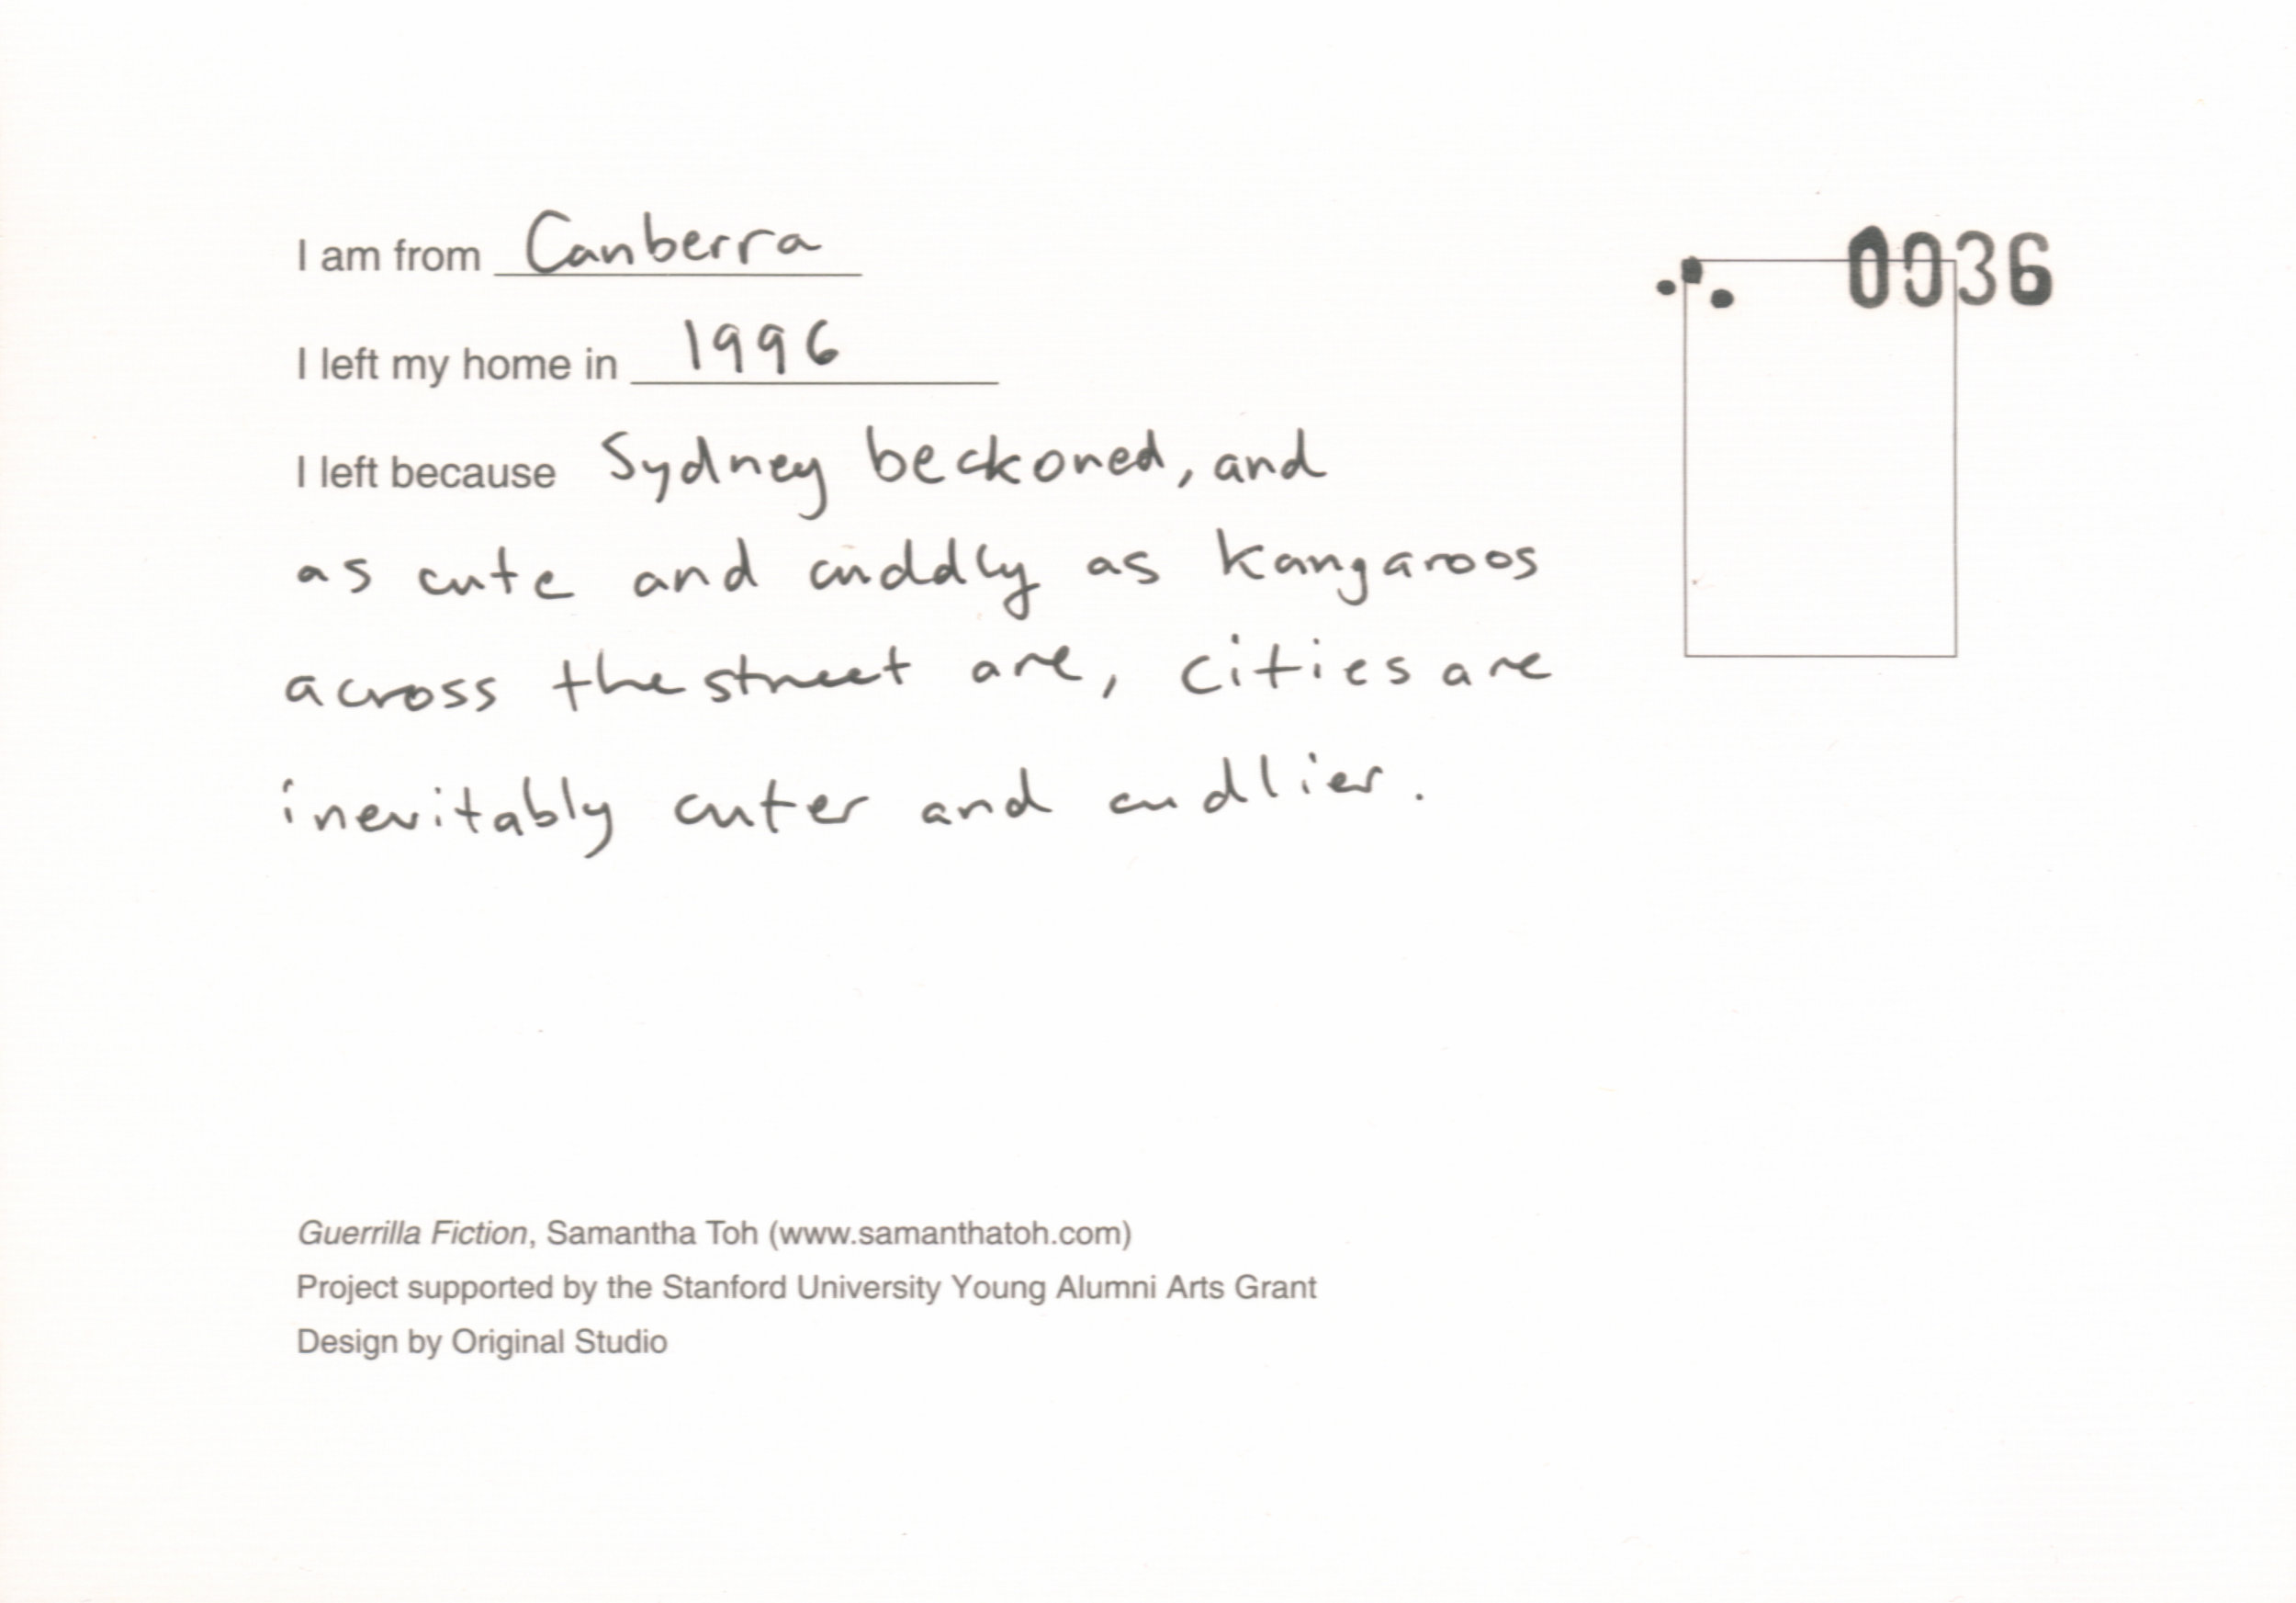 I am from Canberra
0036
I left my home in 1996
I left because Sydney beckoned, and
as cute and cuddly as kangaroos
across the street are, cities are
inevitably cuter and cudlier.
Guerrilla Fiction, Samantha Toh (www.samanthatoh.com)
Project supported by the Stanford University Young Alumni Arts Grant
Design by Original Studio